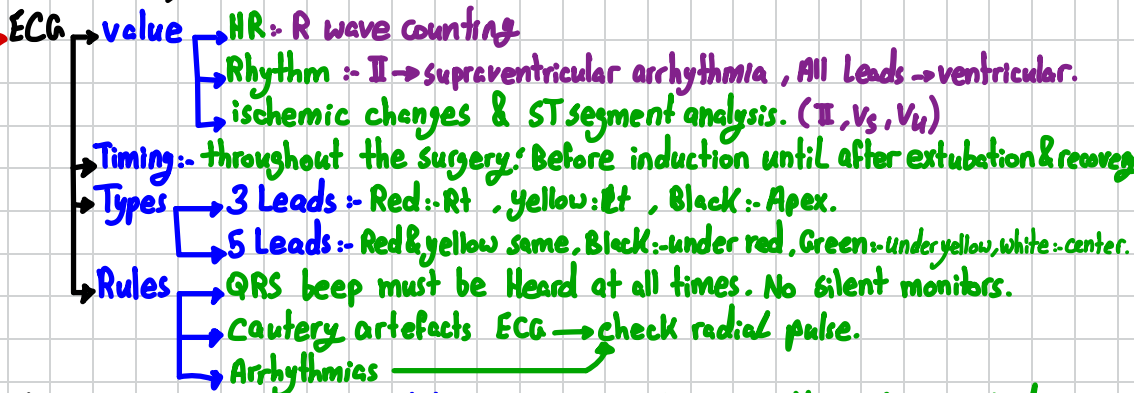 ECG → value → HR:- R wave counting
→ Rhythm :- II → supraventricular arrhythmia , All Leads → ventricular.
→ ischemic changes & ST segment analysis. (II, V5, V4)
→ Timing:- throughout the surgery: Before induction until after extubation & recovery
→ Types → 3 Leads :- Red:- Rt , yellow: Lt , Black:- Apex.
→ 5 Leads :- Red & yellow same, Black:- under red, Green:- under yellow, white:- center.
→ Rules → QRS beep must be Heard at all times. No silent monitors.
→ cautery artefacts ECG → check radial pulse.
→ Arrhythmias